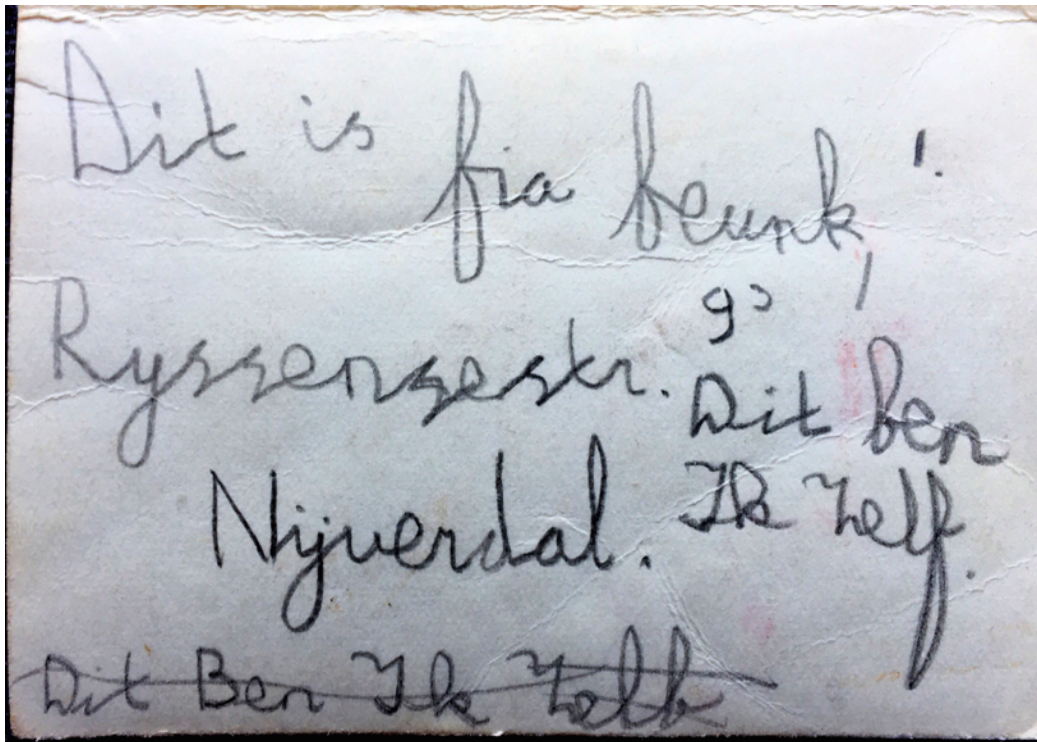 Dit is fia beunk, !
Ryssensestr. 93
Nijverdal.
Dit ben
Ik Zelf.
Dit Ben Ik Zelf